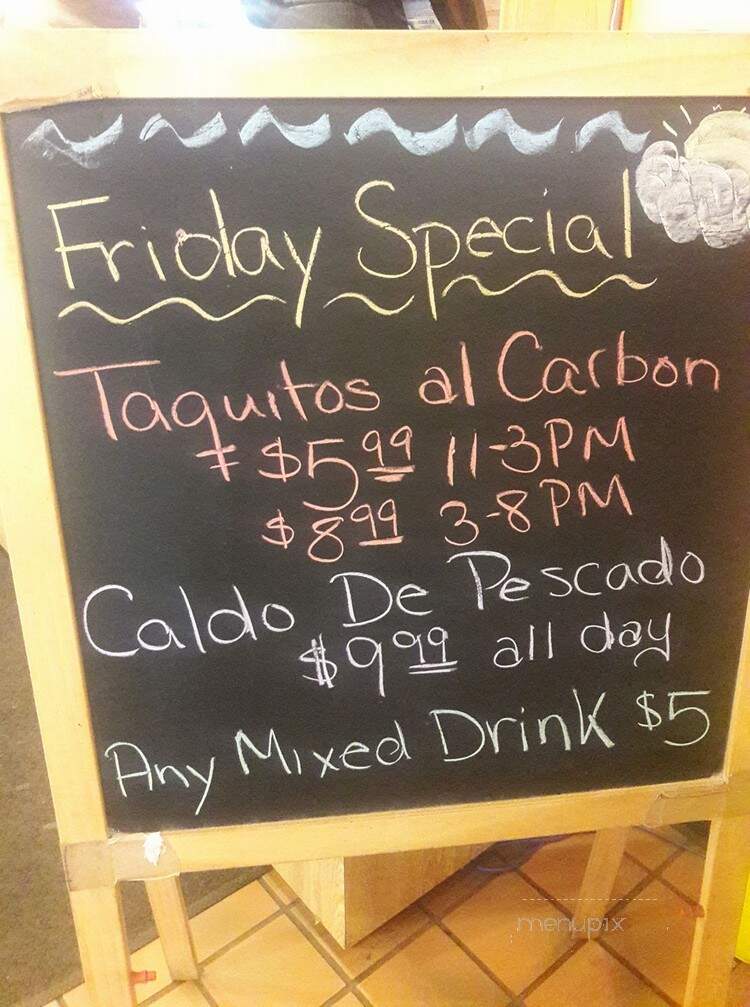 Friday Special
Taquitos al Carbon
$5.99 11-3PM
$8.99 3-8PM
Caldo De Pescado
$9.99 all day
Any Mixed Drink $5
menupix